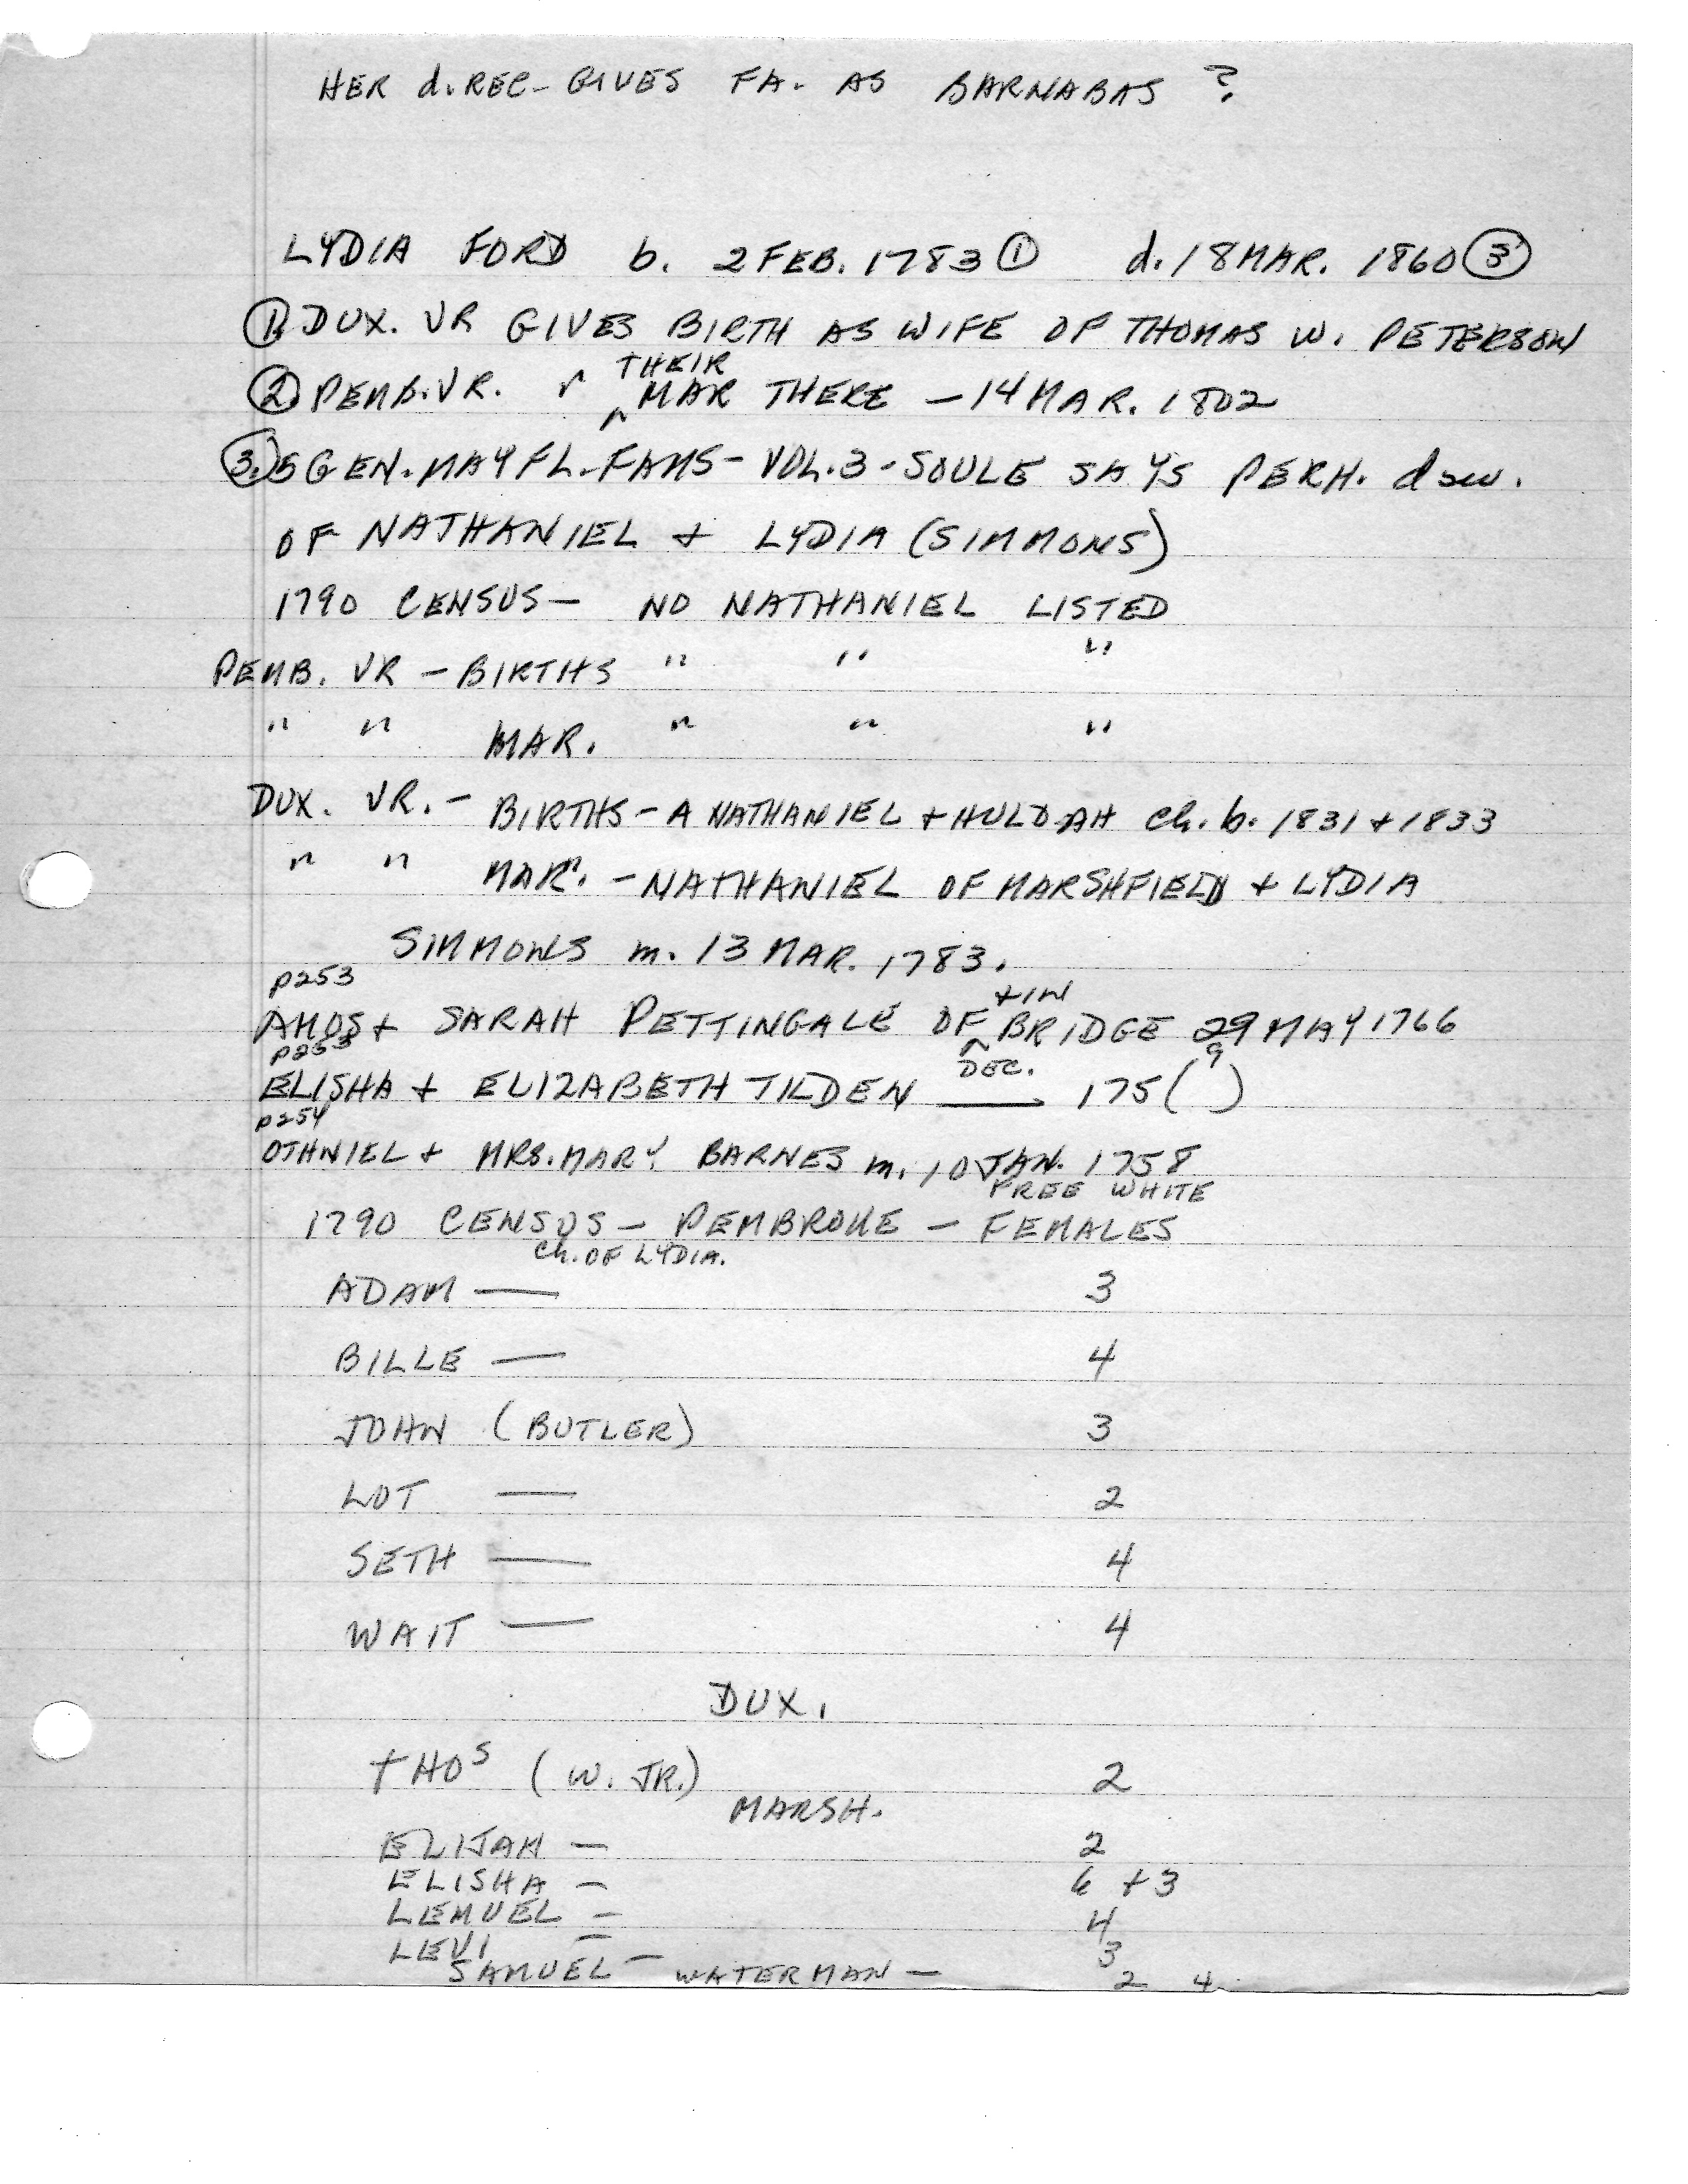 HER d. REC- GIVES FA. AS BARNABAS ?
LYDIA FORD b. 2 FEB. 1783 ① d. 18 MAR. 1860 ③
① DUX. VR GIVES BIRTH AS WIFE OF THOMAS W. PETERSON
THEIR
② PEMB. VR. " ^ MAR THERE - 14 MAR. 1802
③ 5 GEN. MAYFL. FAMS - VOL. 3 - SOULE SAYS PERH. dau.
OF NATHANIEL + LYDIA (SIMMONS)
1790 CENSUS - NO NATHANIEL LISTED
PEMB. VR - BIRTHS " " "
" " MAR. " " "
DUX. VR. - BIRTHS - A NATHANIEL + HULDAH ch. b. 1831 + 1833
" " MAR. - NATHANIEL OF MARSHFIELD + LYDIA
SIMMONS m. 13 MAR. 1783.
p253 + IN
AMOS + SARAH PETTINGALE OF ^ BRIDGE 29 MAY 1766
p253 DEC. 9
ELISHA + ELIZABETH TILDEN — 175( )
p254
OTHNIEL + MRS. MARY BARNES m. 10 JAN. 1758
FREE WHITE
1790 CENSUS - PEMBROKE - FEMALES
ch. OF LYDIA.
ADAM — 3
BILLE — 4
JOHN (BUTLER) 3
LOT — 2
SETH — 4
WAIT — 4
DUX.
THOS (W. JR.) 2
MARSH.
ELIJAH - 2
ELISHA - 6 + 3
LEMUEL - 4
LEVI - 3
SAMUEL - WATERMAN - 2 4